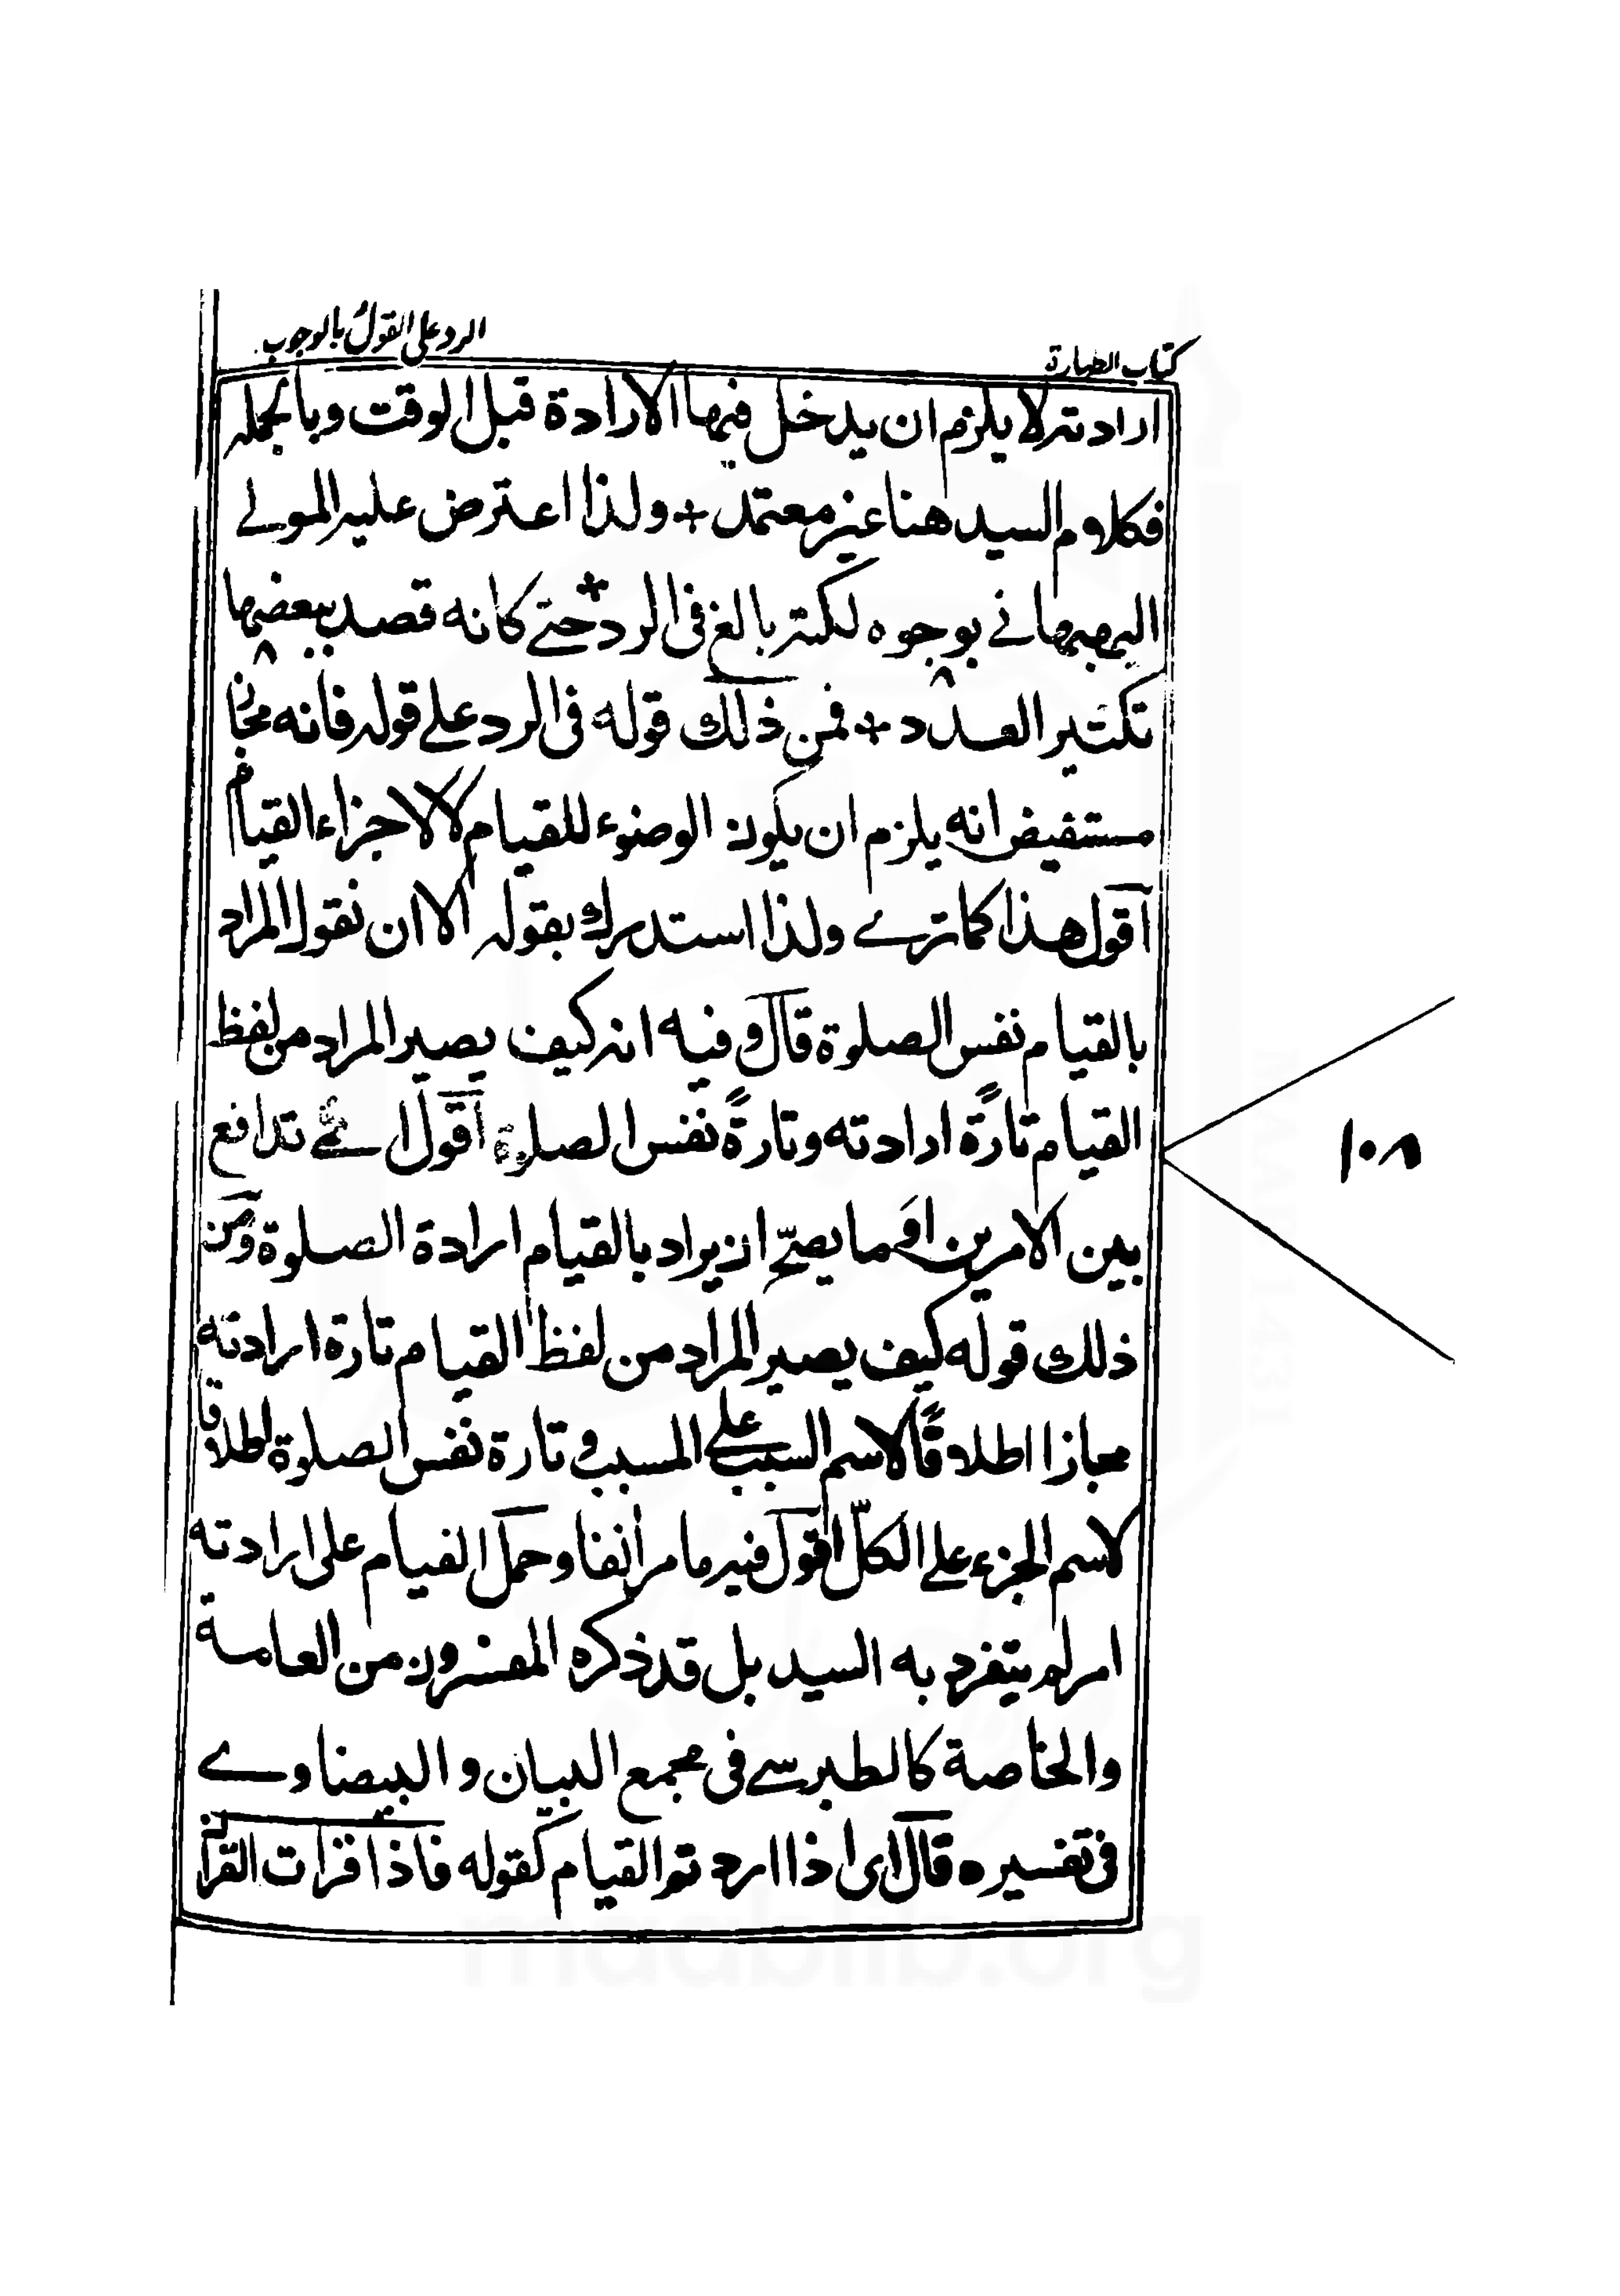 كتاب الطهارة
الرد على القول بالوجوب
ارادته لا يلزم ان يدخل فيها الارادة قبل الوقت وبالجمله
فكلام السيد هنا غير معتمد + ولذا اعترض عليه المولے
البهبهانے بوجوه لكنه بالغ فى الرد + حتے كانه قصد ببعضها
تكثير العدد + فمن ذلك قوله فى الرد علے قوله فانه مجاز
مستفيض انه يلزم ان يكون الوضوء للقيام لا لاجزاء القيام
اقول هذا كما ترے ولذا استدرك بقوله الا ان نقول المراد
بالقيام نفس الصلوة قال وفيه انه كيف يصير المراد من لفظ
القيام تارةً ارادته وتارةً نفس الصلوة اقول اے تدافع
بين الامرين اوَ ما يصحّ ان يراد بالقيام ارادة الصلوة ومن
ذلك قوله كيف يصير المراد من لفظ القيام تارة ارادته
مجازا اطلاقًا لاسم السبب علے المسبب و تارة نفس الصلوة اطلاقا
لاسم الجزء علے الكلّ اقول فيه ما مر انفا وحمل القيام على ارادته
امر لم يتفرد به السيد بل قد ذكره المفسرون من العامة
والخاصة كالطبرسے فى مجمع البيان و البيضاوے
فى تفسيره قال اى اذا اردتم القيام كقوله فاذا قرات القران
١٠٨
maablib.org